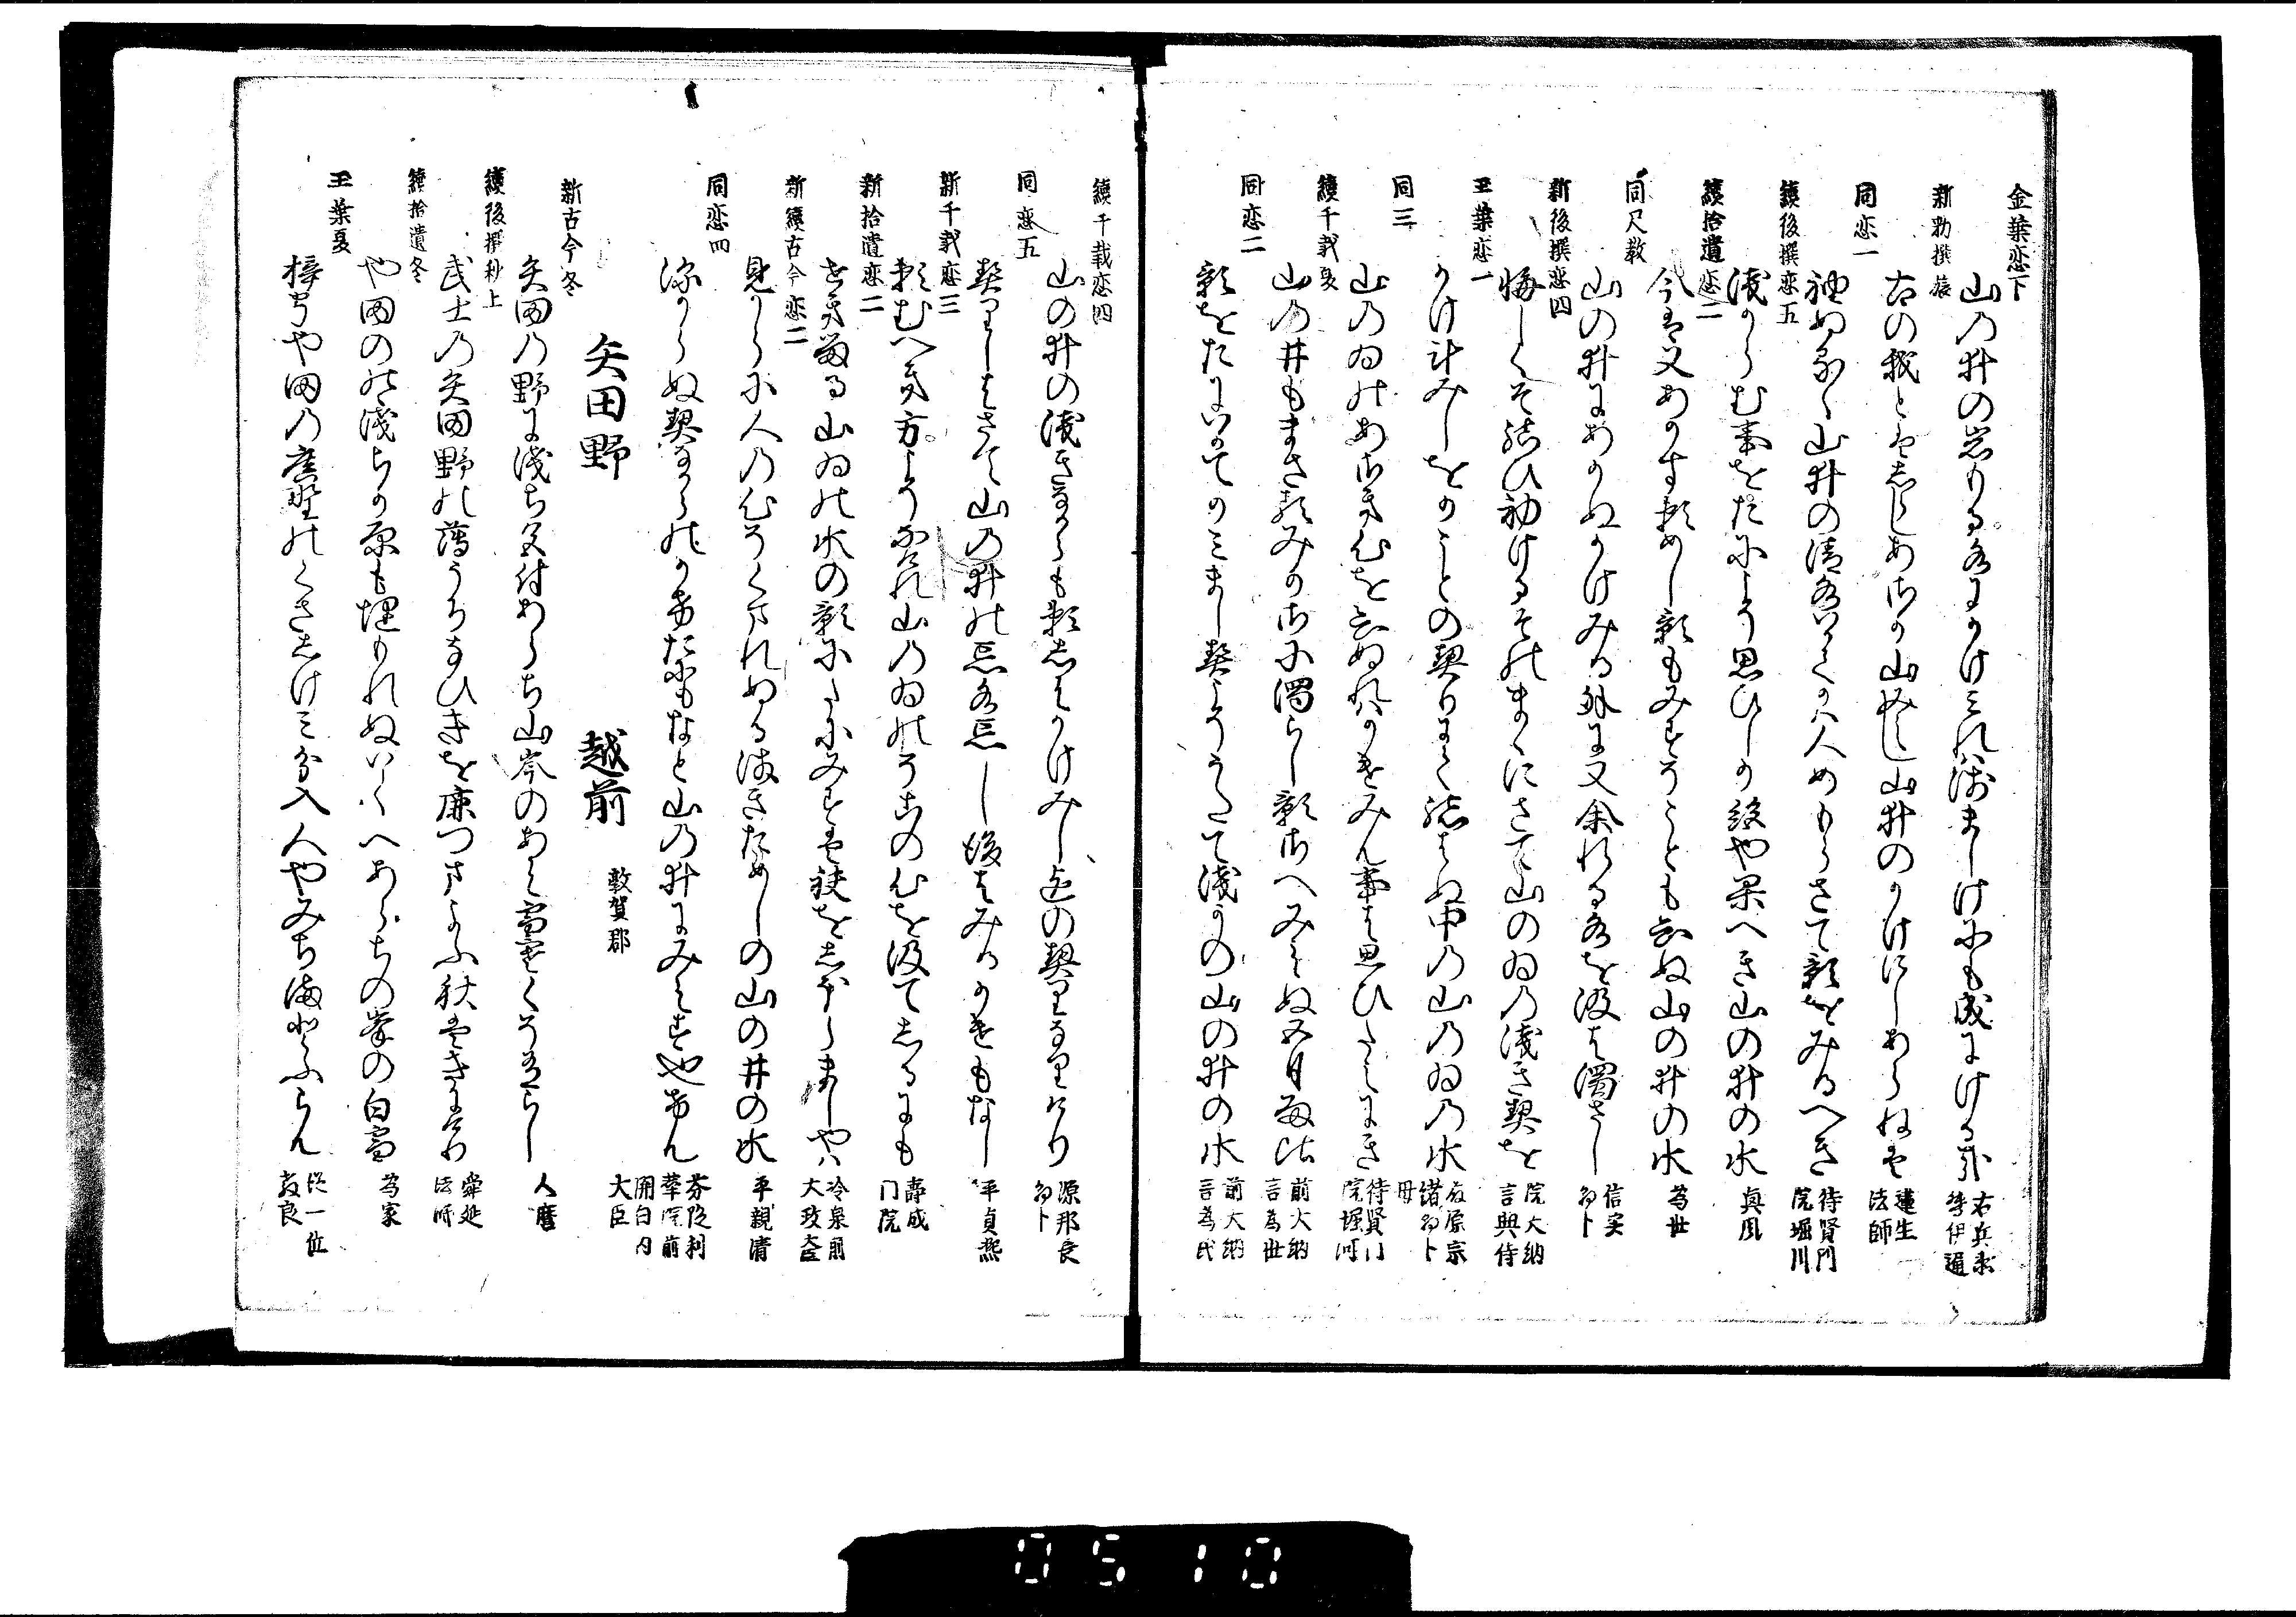 金葉恋下
山乃井の岩もる水にかけみれは浅ましけにも成にける哉 右兵衛督伊通
新勅撰旅
古の我とはしらしあさか山みえし山井のかけにしあらねは 蓮生法師
同恋一
袖ぬるゝ山井の清水いかてかは人めもらさて影をみるへき 待賢門院堀川
続後撰恋五
浅からむ事をたにこそ思ひしか絶や果へき山の井の水 真風
続拾遺恋二
今は又あかす頼めし影もみすそことも知ぬ山の井の水 為世
同尺教
山の井にめかぬかけみる外に又余れる水を汲は濁さし 信実
新後撰恋四
悔しくそ結ひ初けるそのまゝにさて山のゐの浅き契を 院大納言典侍
玉葉恋一
かけ計みしをのことの契りにて結はぬ中の山のゐの水 藤原宗緒
母
同三
山のゐのあさき心を知ぬれはかけみん事は思ひたえにき 待賢門院堀河
続千載夏
山の井もまさるみかさに濁らし影さへみえぬ五月雨比 前大納言為世
同恋二
影をたにいかてかみまし契こそうたて浅かの山の井の水 前大納言為氏
続千載恋四
山の井の浅きなからも頼しはかけみし迄の契りなりけり 源邦長
同恋五
契りしはさて山の井の忘水忘し後はみるかけもなし 平貞煕
新千載恋三
頼むへき方こそなけれ山のゐのそこの心を汲てしるにも 寿成门院
新拾遺恋二
せき留る山ゐの水の影にたにみすは袂をしほらましやは 冷泉前大政大臣
新続古今恋二
見からに人の心そくまれぬる浅きためしの山の井の水 平親清
同恋四
深からぬ契なからのかけたにもなと山の井にみえすや有けん 芬陀利華院前関白内大臣
矢田野 越前 敦賀郡
新古今冬
矢田の野に浅ち色付あらち山岑のあは雪寒くそ有らし 人麿
続後撰秋上
武士の矢田野の薄うちなひきを鹿つまよふ秋はきにけり 舜延法師
続拾遺冬
や田の野浅ちか原も埋もれぬいくへあらちの峯の白雪 為家
玉葉夏
梓弓や田の広野のくさしけみ分入人やみちまよふらん 従一位教良